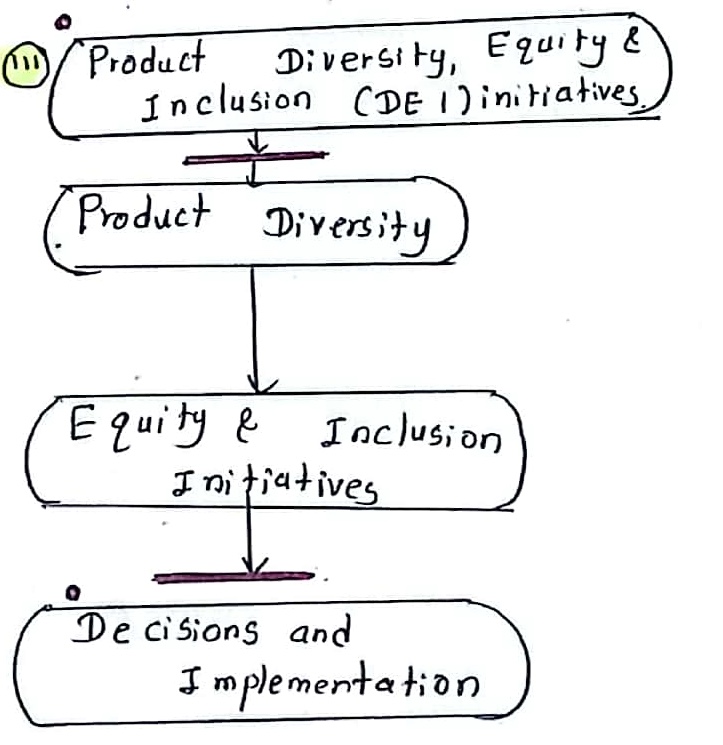 (iii)
Product Diversity, Equity &
Inclusion (DE I) initiatives.
Product Diversity
Equity & Inclusion
Initiatives
Decisions and
Implementation